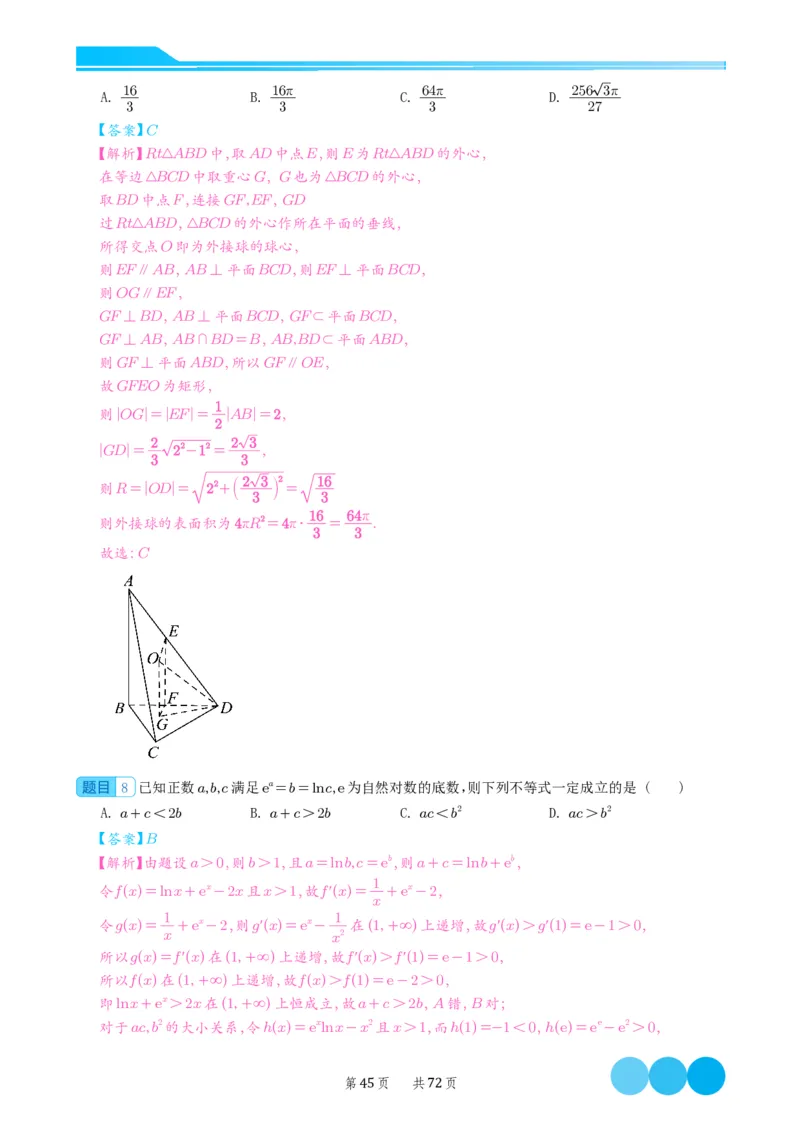 A. 16/3 B. 16π/3 C. 64π/3 D. 256√3π/27
【答案】C
【解析】Rt△ABD中,取AD中点E,则E为Rt△ABD的外心,
在等边△BCD中取重心G, G也为△BCD的外心,
取BD中点F,连接GF,EF, GD
过Rt△ABD, △BCD的外心作所在平面的垂线,
所得交点O即为外接球的球心,
则EF∥AB, AB⊥平面BCD,则EF⊥平面BCD,
则OG∥EF,
GF⊥BD, AB⊥平面BCD, GF⊂平面BCD,
GF⊥AB, AB∩BD=B, AB,BD⊂平面ABD,
则GF⊥平面ABD,所以GF∥OE,
故GFEO为矩形,
则|OG|=|EF|=1/2|AB|=2,
|GD|=2/3√(2²-1²)=2√3/3,
则R=|OD|=√(2²+(2√3/3)²)=√(16/3)
则外接球的表面积为4πR²=4π·16/3=64π/3.
故选:C
A
E
O
F
B
D
G
C
题目 8 已知正数a,b,c满足eᵃ=b=lnc,e为自然对数的底数,则下列不等式一定成立的是 ( )
A. a+c<2b B. a+c>2b C. ac<b² D. ac>b²
【答案】B
【解析】由题设a>0,则b>1,且a=lnb,c=eᵇ,则a+c=lnb+eᵇ,
令f(x)=lnx+eˣ-2x且x>1,故f′(x)=1/x+eˣ-2,
令g(x)=1/x+eˣ-2,则g′(x)=eˣ-1/x²在(1,+∞)上递增,故g′(x)>g′(1)=e-1>0,
所以g(x)=f′(x)在(1,+∞)上递增,故f′(x)>f′(1)=e-1>0,
所以f(x)在(1,+∞)上递增,故f(x)>f(1)=e-2>0,
即lnx+eˣ>2x在(1,+∞)上恒成立,故a+c>2b, A错, B对;
对于ac,b²的大小关系,令h(x)=eˣlnx-x²且x>1,而h(1)=-1<0, h(e)=eᵉ-e²>0,
第45页 共72页